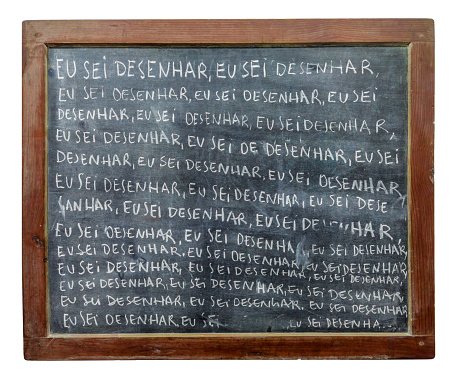 EU SEI DESENHAR, EU SEI DESENHAR,
EU SEI DESENHAR, EU SEI DESENHAR, EU SEI
DESENHAR, EU SEI DESENHAR, EU SEI DESENHAR,
EU SEI DESENHAR, EU SEI DE DESENHAR, EU SEI
DESENHAR, EU SEI DESENHAR, EU SEI DESENHAR
EU SEI DESENHAR, EU SEI DESENHAR, EU SEI DESE
SANHAR, EU SEI DESENHAR, EU SEI DESENHAR
EU SEI DESENHAR, EU SEI DESENHA, EU SEI DESENHAR,
EU SEI DESENHAR, EU SEI DESENHAR, EU SEI DESENHAR,
EU SEI DESENHAR, EU SEI DESENHAR, EU SEI DESENHAR,
EU SEI DESENHAR, EU SEI DESENHAR, EU SEI DESENHAR,
EU SEI DESENHAR, EU SEI DESENHAR. EU SEI DESENHAR
EU SEI DESENHAR, EU SEI EU SEI DESENHA